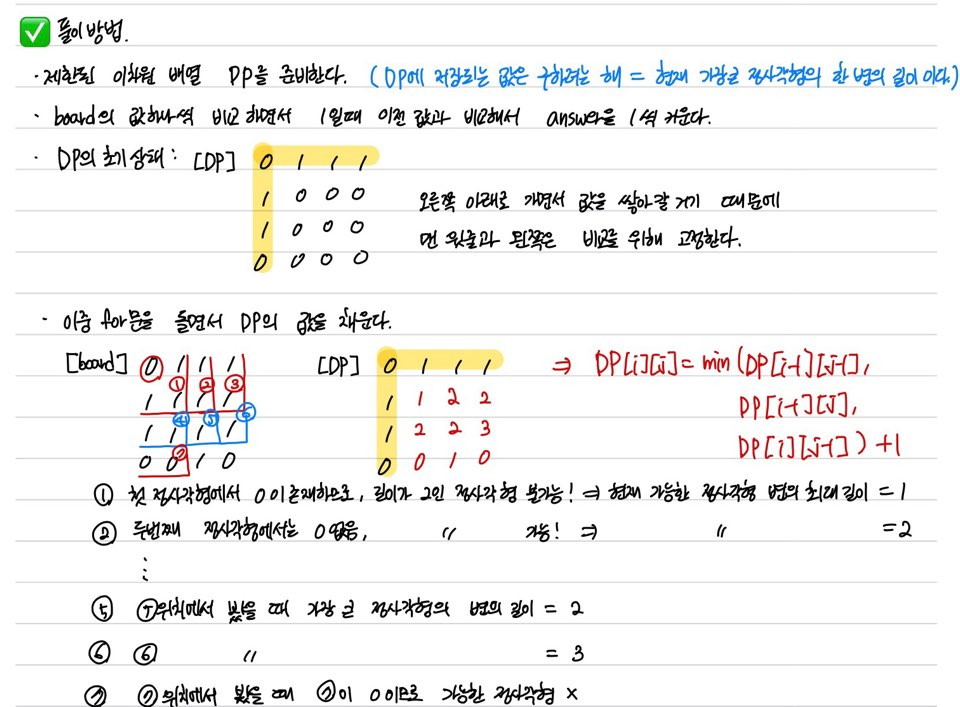 ✅ 풀이방법.
· 제한된 이차원 배열 DP를 준비한다. (DP에 저장되는 값은 구하려는 해 = 현재 가장 큰 정사각형의 한 변의 길이 이다.)
· board의 값하나씩 비교 하면서 1일때 이전 값과 비교해서 answer을 1씩 키운다.
· DP의 초기상태 : [DP] 0 1 1 1
1 0 0 0
1 0 0 0
0 0 0 0
오른쪽 아래로 가면서 값을 쌓아갈 거기 때문에
맨 윗줄과 왼쪽은 비교를 위해 고정한다.
· 이중 for문을 돌면서 DP의 값을 채운다.
[board] 0 1 1 1
① ② ③
1 1 1 1
④ ⑤ ⑥
1 1 1 1
⑦
0 0 1 0
[DP] 0 1 1 1
1 1 2 2
1 2 2 3
0 0 1 0
⇒ DP[i][j] = min (DP[i-1][j-1],
DP[i-1][j],
DP[i][j-1]) + 1
① 첫 정사각형에서 0이 존재하므로, 길이가 2인 정사각형 불가능! ⇒ 현재 가능한 정사각형 변의 최대 길이 = 1
② 두번째 정사각형에서는 0 없음, 〃 가능! ⇒ 〃 = 2
⋮
⑤ ⑤위치에서 봤을 때 가장 큰 정사각형의 변의 길이 = 2
⑥ ⑥ 〃 = 3
⑦ ⑦위치에서 봤을 때 ⑦이 0이므로 가능한 정사각형 ×